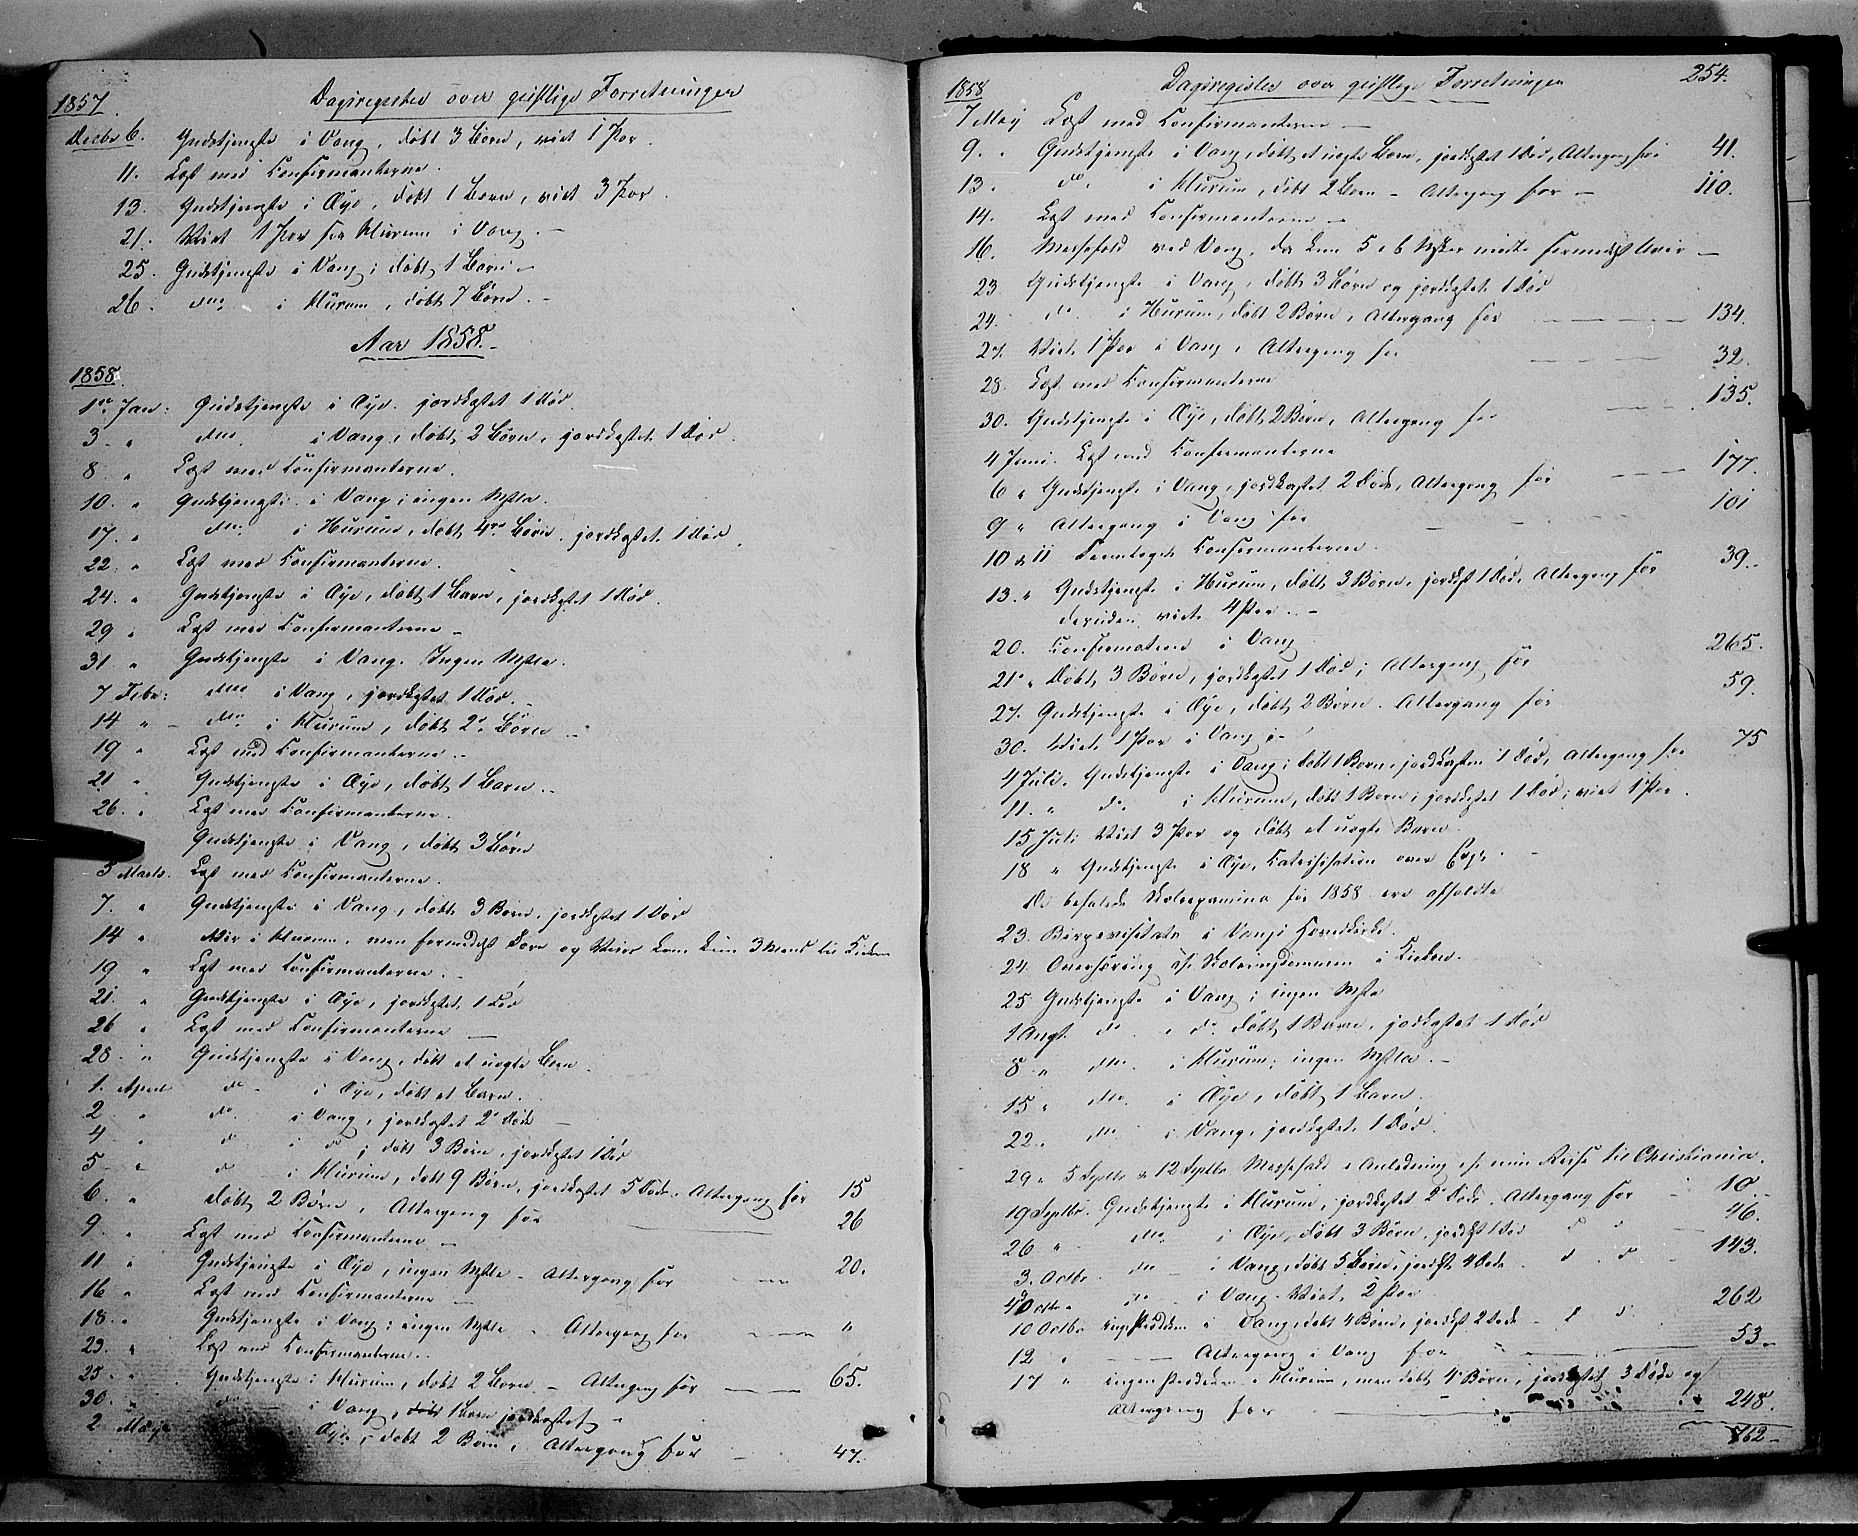 Dagsregister over geistlige Forretninger
1857.
Decbr 6. Gudstjeneste i Vang, døbt 3 Børn, viet 1 Par.
11. Læst med Confirmanterne.
13. Gudstjeneste i Øye, døbt 1 Barn, viet 3 Par.
21. Viet 1 Par fra Hurum i Vang. –
25. Gudstjeneste i Vang; døbt 1 Barn –
26. do i Hurum, døbt 7 Børn. –
Aar 1858. –
1858.
1ste Jan: Gudstjeneste i Øye. jordkastet 1 Død.
3 " do i Vang, døbt 2 Børn, jordkastet 1 Død.
8 " Læst med Confirmanterne.
10. " Gudstjeneste i Vang; ingen Mżla.
17. " do i Hurum, døbt 4re Børn. jordkastet 1 Død.
22. " Læst med Confirmanterne.
24. " Gudstjeneste i Øye, døbt 1 Barn, jordkastet 1 Død.
29 " Læst med Confirmanterne –
31. " Gudstjeneste i Vang. Ingen
7 Febr: do i Vang, jordkastet 1 Død. –
14 " – do i Hurum, døbt 2 Børn –
19 " Læst med Confirmanterne –
21 " Gudstjeneste i Øye, døbt 1 Barn –
26. " Læst med Confirmanterne.
Gudstjeneste i Vang, døbt 3 Børn
5 Marts. Læst med Confirmanterne.
7. " Gudstjeneste i Vang, døbt 3 Børn, jordkastet 1 Død
14 " i Hurum, men formedelst og Veir kom kun 3 Mænd til Kirken
19 " Læst med Confirmanterne. –
21. " Gudstjeneste i Øye, jordkastet 1 Død
26 " Læst med Confirmanterne –
28 " Gudstjeneste i Vang, døbt et uægte Barn
1. April do – i Øye, døbt et Barn.
2 " do i Vang, jordkastet 2 Døde –
4 " d i d; døbt 3 Børn, jordkastet 1 Død
5 " d i Hurum, døbt 9 Børn, jordkastet 5 Døde. Altergang for 15
6. " døbt 2 Børn, Altergang for 26
9. " Læst med Confirmanterne –
11 " Gudstjeneste i Øye, ingen – Altergang for 20.
16 " Læst med Confirmanterne –
18. " Gudstjeneste i Vang; ingen – Altergang for "
23. " Læst med Confirmanterne.
25. " Gudstjeneste i Hurum, døbt 2 Børn – Altergang for 65.
30. " do i Vang, døbt 1 Barn jordkastet
2 May Øye, døbt 2 Børn, Altergang for 47.
254.
Dagsregister over geistlige Forretninger
1858
7 May Læst med Confirmanterne –
9. " Gudstjeneste i Vang, døbt et uægte Barn, jordkastet 1 Død, Altergang for 41.
13. do i Hurum, døbt 2 Børn – Altergang for – 110.
14. Læst med Confirmanterne –
16. Messefald ved Vang, da kun 5 a 6 mødte formedelst Uveir –
23. Gudstjeneste i Vang, døbt 3 Børn og jordkastet 1 Død
24. do i Hurum, døbt 2 Børn, Altergang for 134.
27. Viet 1 Par i Vang, Altergang for 32.
28. Læst med Confirmanterne
30. Gudstjeneste i Øye, døbt 2 Børn, Altergang for 135.
4 Juni. Læst med Confirmanterne
6 " Gudstjeneste i Vang, jordkastet 2 Døde, Altergang for 177.
9 " Altergang i Vang for 101
10 & 11 Confirmanterne.
13. " Gudstjeneste i Hurum, døbt 3 Børn, jordkst 1 Død, Altergang for 39.
desuden viet 4 Par –
20. Confirmation i Vang
21 " Døbt 3 Børn, jordkastet 1 Død; Altergang for 265.
27. Gudstjeneste i Øye, døbt 2 Børn. Altergang for 59.
30. Viet 1 Par i Vang –
4 Juli. Gudstjeneste i Vang; døbt 1 Barn, jordkastet 1 Død, Altergang for 75
11. " do i Hurum, døbt 1 Barn; jordkastet 1 Død; viet 1 Par.
15 Juli Viet 3 Par og døbt et uægte Barn
18 " Gudstjeneste i Øye, Catechisation over
De befalede Skoleexamina for 1858 ere afholdte
23. Bispevisitats i Vangs Hovedkirke.
24. Overhøring af Skoleungdommen i Kirken.
25 Gudstjeneste i Vang; ingen
1 Augst do i do døbt 1 Barn, jordkastet 1 Død
8 " do i Hurum; ingen –
15 " do i Øye, døbt 1 Barn.
22. " do i Vang, jordkastet 1 Død.
29 " 5 Septbr & 12 Septbr Messefald i Anledning af min Reise til Christiania.
19 Septbr. Gudstjeneste i Hurum, jordkastet 2 Døde. Altergang for – 10
26 " do i Øye, døbt 3 Børn, jordkst 1 Død d " 46.
3. Octbr do i Vang, døbt 5 Børn, jordkst 4 Døde d d 143.
4 Octbr do i Vang. Viet 2 Par
10 Octbr ingen Prædiken i Vang, døbt 4 Børn, jordkst 2 Døde – d d 262
12 " Altergang i Vang for 53 –
17 " ingen Prædiken i Hurum, men døbt 4 Børn, jordkastet 3 Døde og
Altergang for 248.
762 –